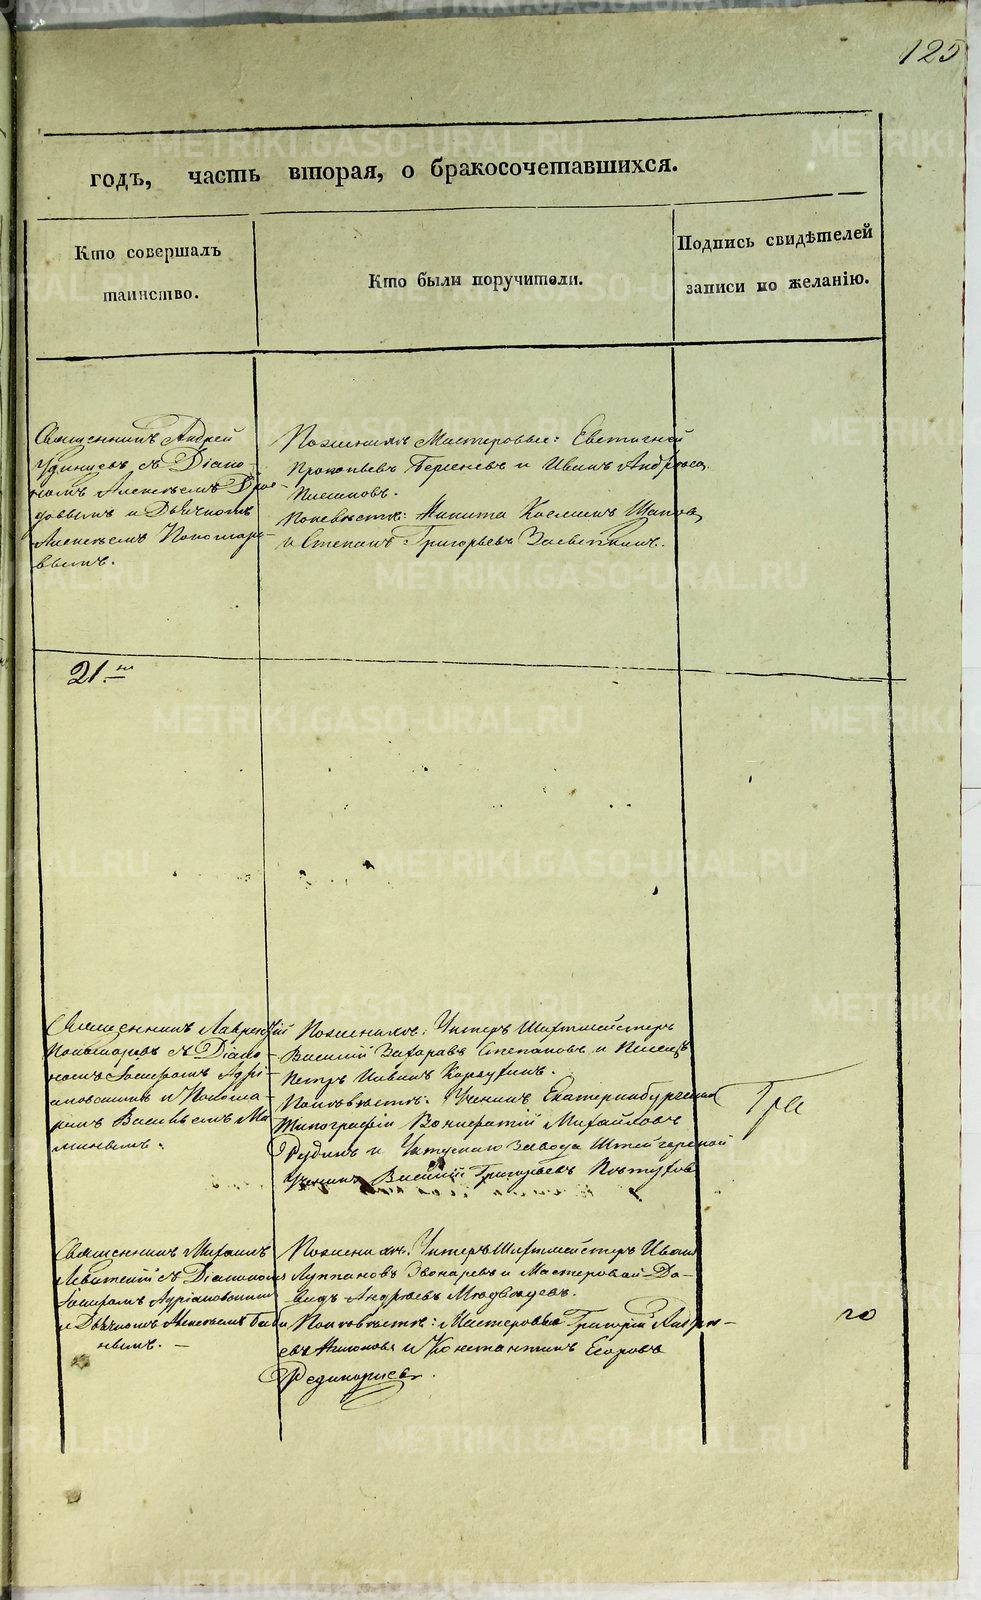 125
годъ, часть вторая, о бракосочетавшихся.
Кто совершалъ
таинство.
Кто были поручители.
Подпись свидѣтелей
записи по желанію.
Священникъ Андрей
съ Діако-
номъ Алексѣемъ
и Дьячкомъ
Алексѣемъ Пономаре-
вымъ.
По женихѣ Мастеровые: Евстигней
Прокопьевъ и Иванъ Андреевъ
По невѣстѣ: Никита Космин
и Степанъ Григорьевъ
21.
Священникъ Лаврентій
Пономаревъ съ Діако-
номъ Іосифомъ Адрі-
ановскимъ и Понома-
ремъ Васильемъ Ма-
минымъ.
По женихѣ: Унтеръ Шихтмейстеръ
Василій Захаровъ Степановъ и Писецъ
Петръ Ивановъ
По невѣстѣ: Ученикъ Екатеринбургской
Типографіи Вонифатій Михайловъ
и завода Штейгерской
Ученикъ Василій Григорьевъ Пѣтуховъ
Гра
Священникъ Михаилъ
Левитскій съ Діакономъ
Іосифомъ Адріановскимъ
и Дьячкомъ Алексѣемъ
По женихѣ: Унтеръ Шихтмейстеръ Иванъ
Луппановъ Звонаревъ и Мастеровой Да-
видъ Андреевъ Медвѣдевъ.
По невѣстѣ: Мастеровые Григорій Андре-
евъ и Константинъ Егоровъ
го
METRIKI.GASO-URAL.RU